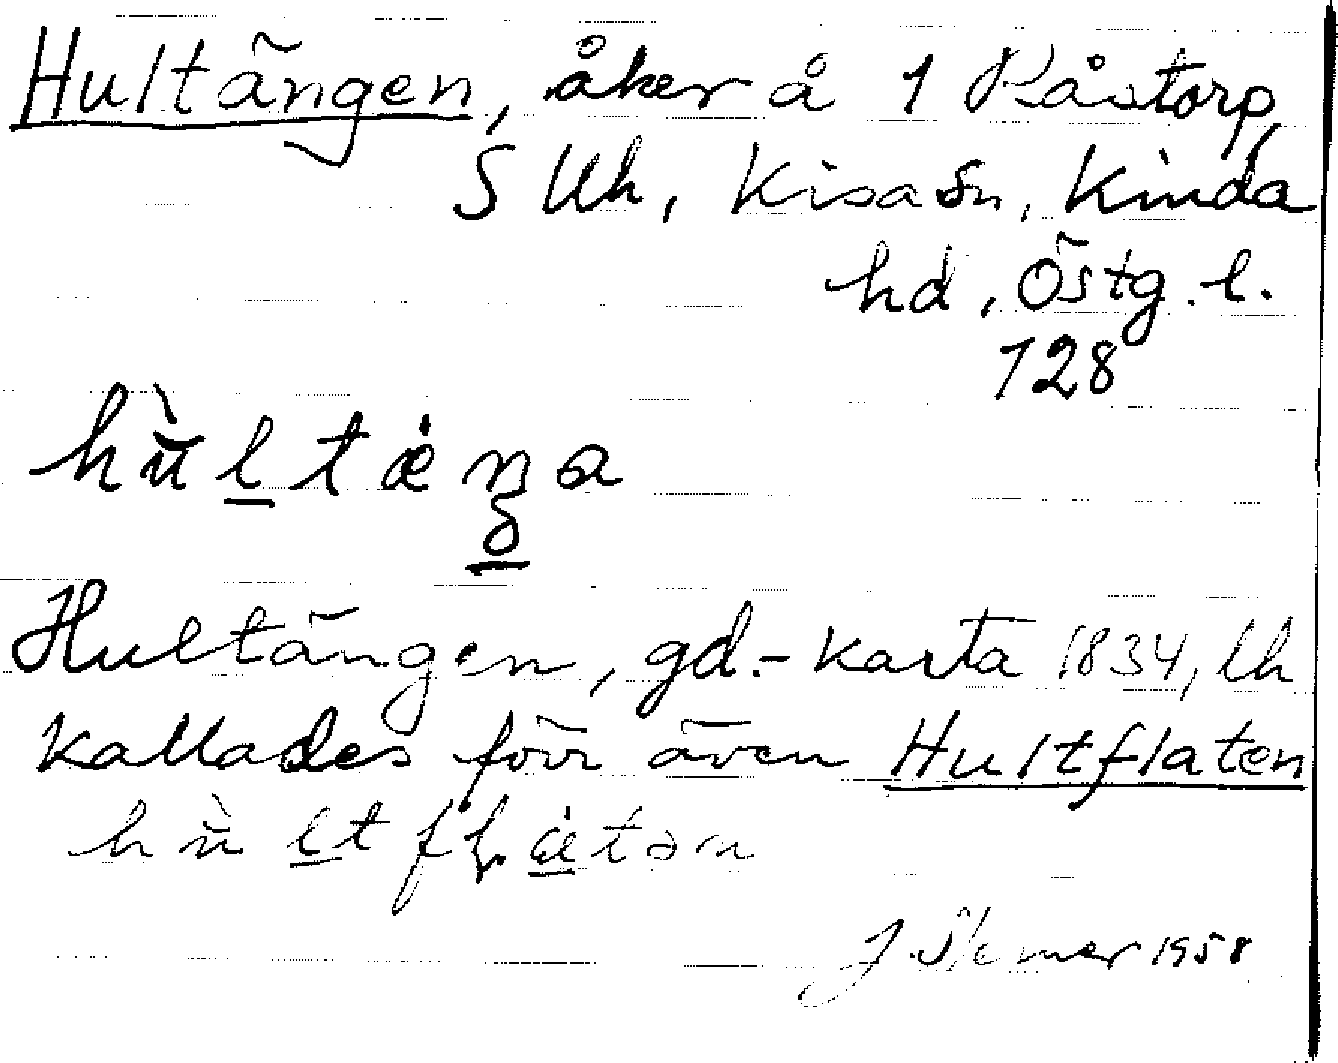 Hultängen, åker å 1 Råstorp,
S Uh, Kisa sn, Kinda
hd, Östg. l.
128
hùltæ̇ŋa
Hultängen, gd.-karta 1834, lh
kallades förr även Hultflaten
1958